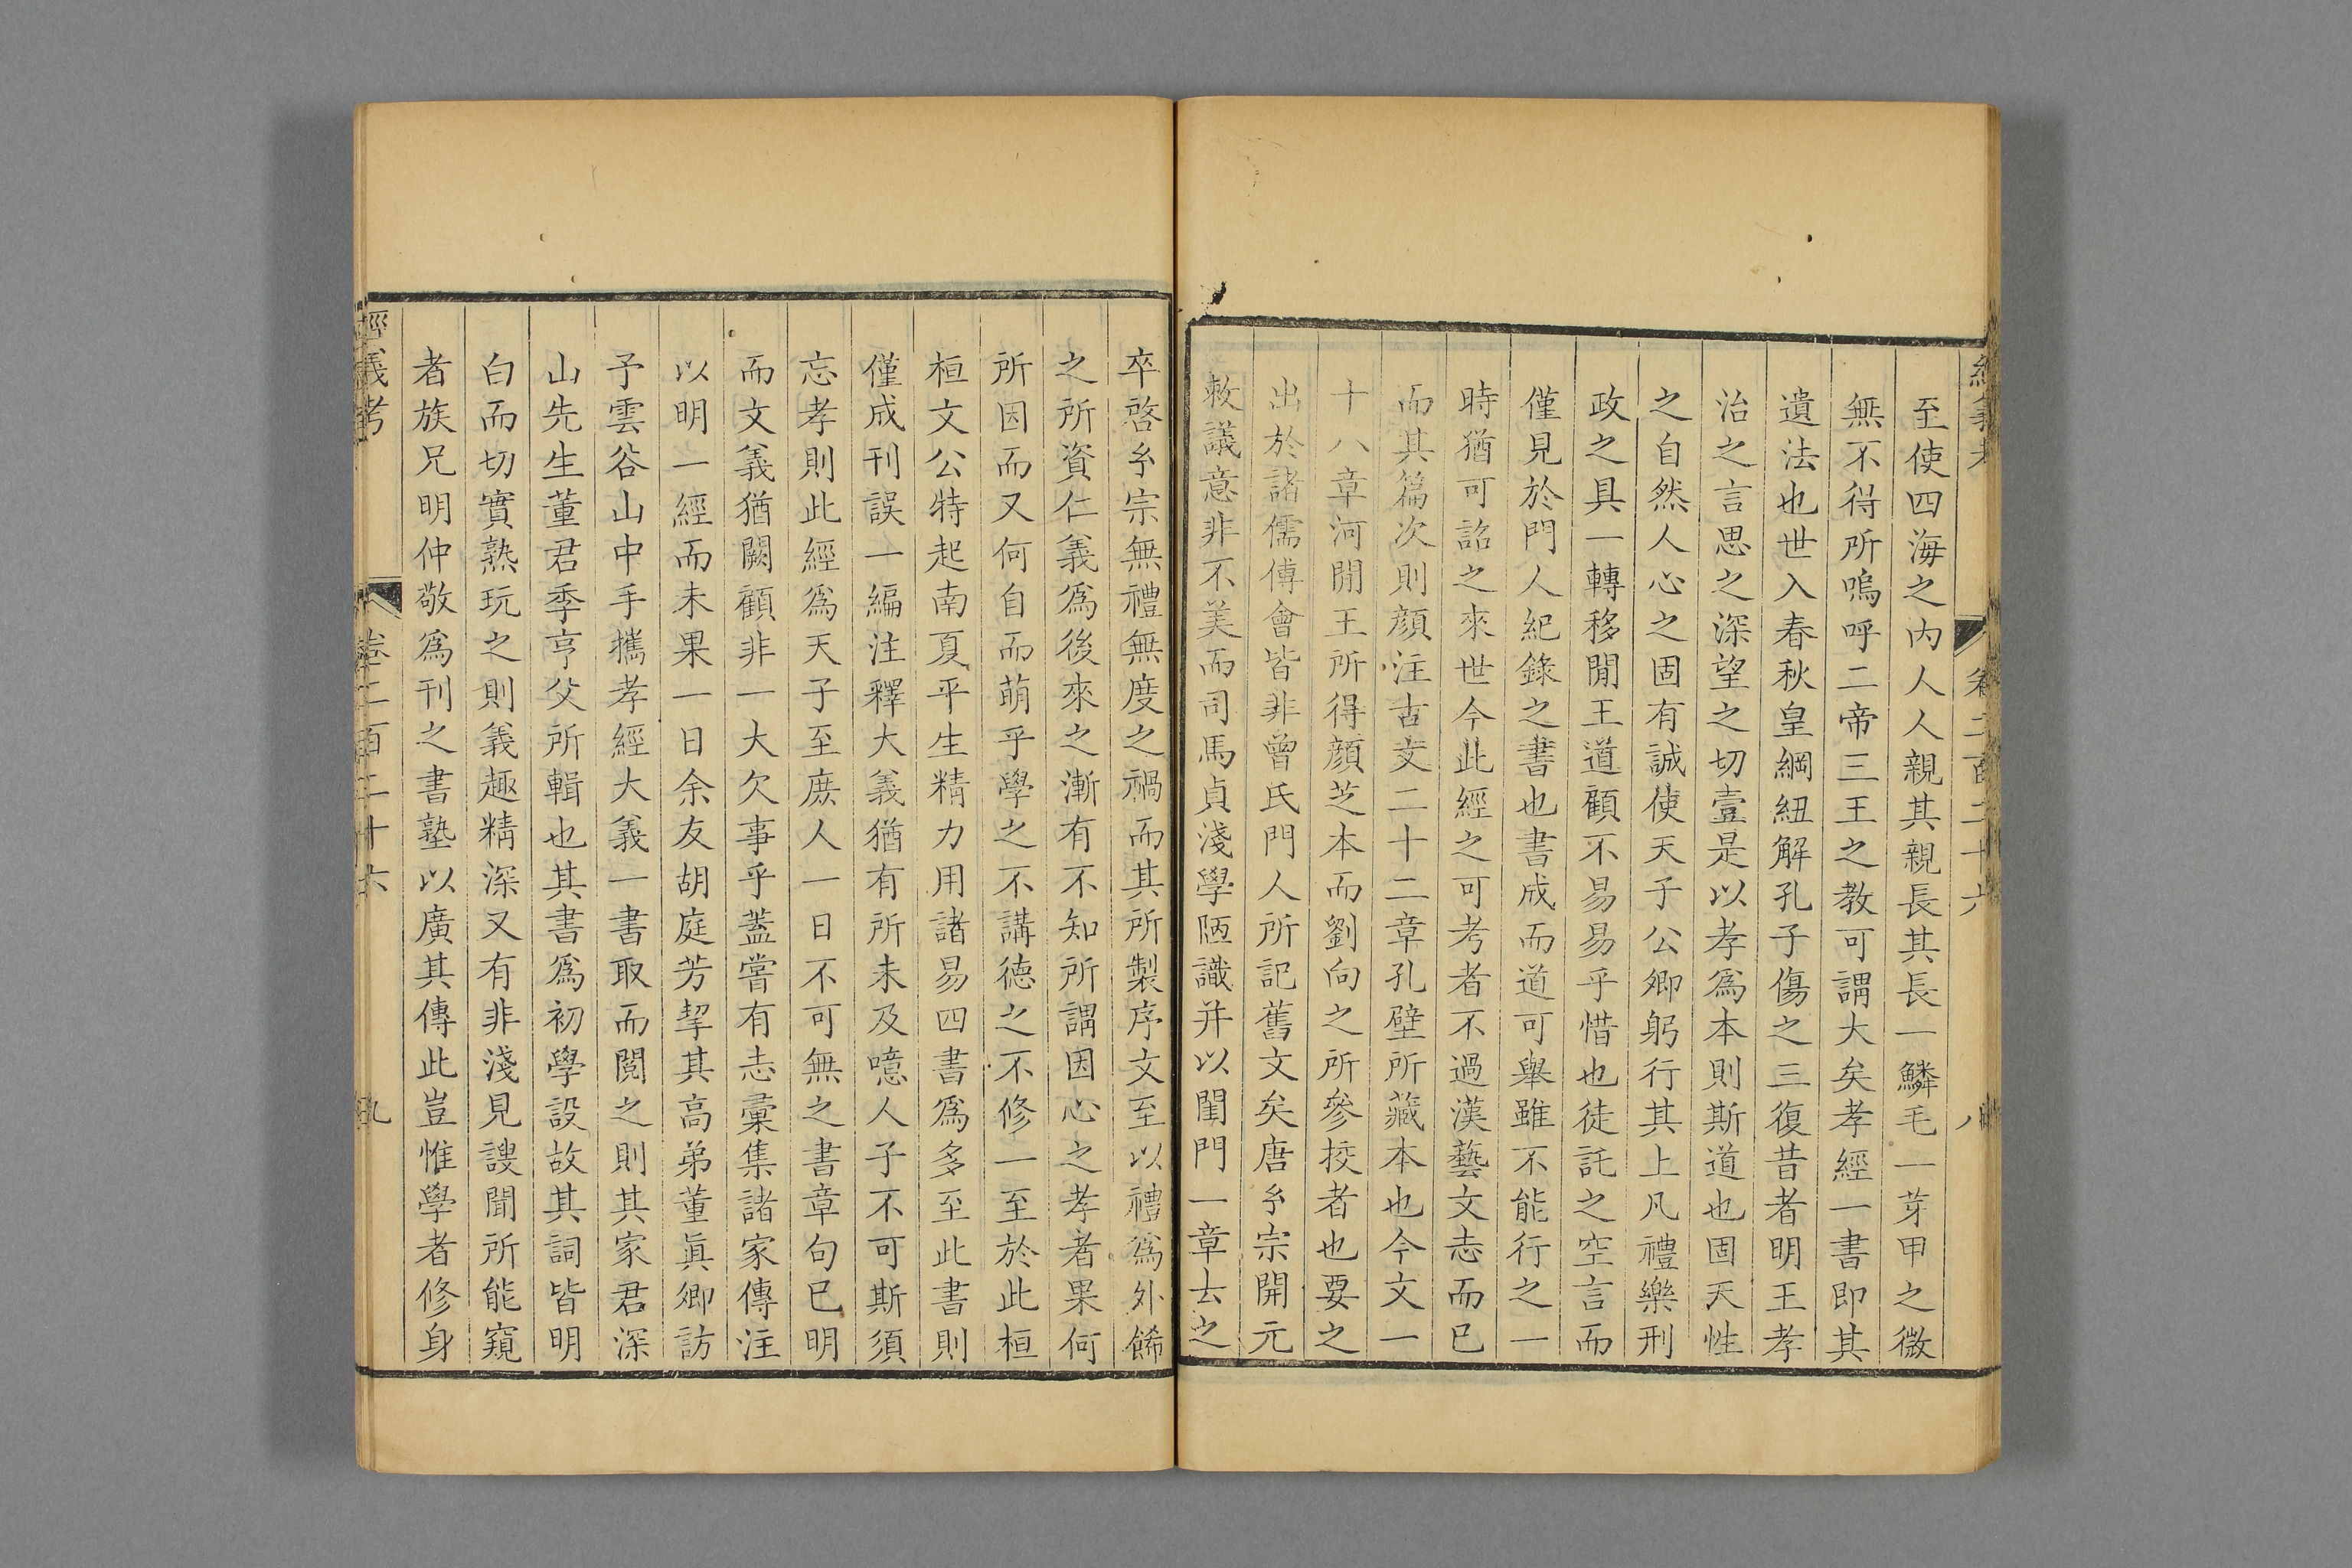 經義考 卷二百二十六 八
至使四海之内人人親其親長其長一鱗毛一芽甲之微
無不得所嗚呼二帝三王之教可謂大矣孝經一書即其
遺法也世入春秋皇綱紐解孔子傷之三復昔者明王孝
治之言思之深望之切壹是以孝爲本則斯道也固天性
之自然人心之固有誠使天子公卿躬行其上凡禮樂刑
政之具一轉移閒王道顧不易易乎惜也徒託之空言而
僅見於門人紀錄之書也書成而道可舉雖不能行之一
時猶可詔之來世今此經之可考者不過漢藝文志而已
而其篇次則顔注古文二十二章孔壁所藏本也今文一
十八章河閒王所得顔芝本而劉向之所參挍者也要之
出於諸儒傅會皆非曾氏門人所記舊文矣唐𤣥宗開元
敕議意非不美而司馬貞淺學陋識并以閨門一章去之
卒啓𤣥宗無禮無度之禍而其所製序文至以禮爲外餙
之所資仁義爲後來之漸有不知所謂因心之孝者果何
所因而又何自而萌乎學之不講德之不修一至於此桓
桓文公特起南夏平生精力用諸易四書爲多至此書則
僅成刊誤一編注釋大義猶有所未及噫人子不可斯須
忘孝則此經爲天子至庶人一日不可無之書章句已明
而文義猶闕顧非一大欠事乎蓋嘗有志彙集諸家傳注
以明一經而未果一日余友胡庭芳挈其高弟董眞卿訪
予雲谷山中手攜孝經大義一書取而閲之則其家君深
山先生董君季亨父所輯也其書爲初學設故其詞皆明
白而切實熟玩之則義趣精深又有非淺見謏聞所能窺
者族兄明仲敬爲刊之書塾以廣其傳此豈惟學者修身
經義考 卷二百二十六 九